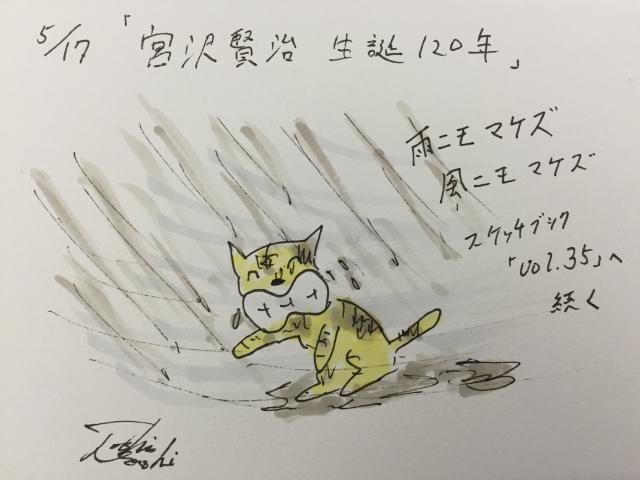 5/17 「宮沢賢治 生誕120年」
雨ニモマケズ
風ニモマケズ
スケッチブック
「vol.35」へ
続く